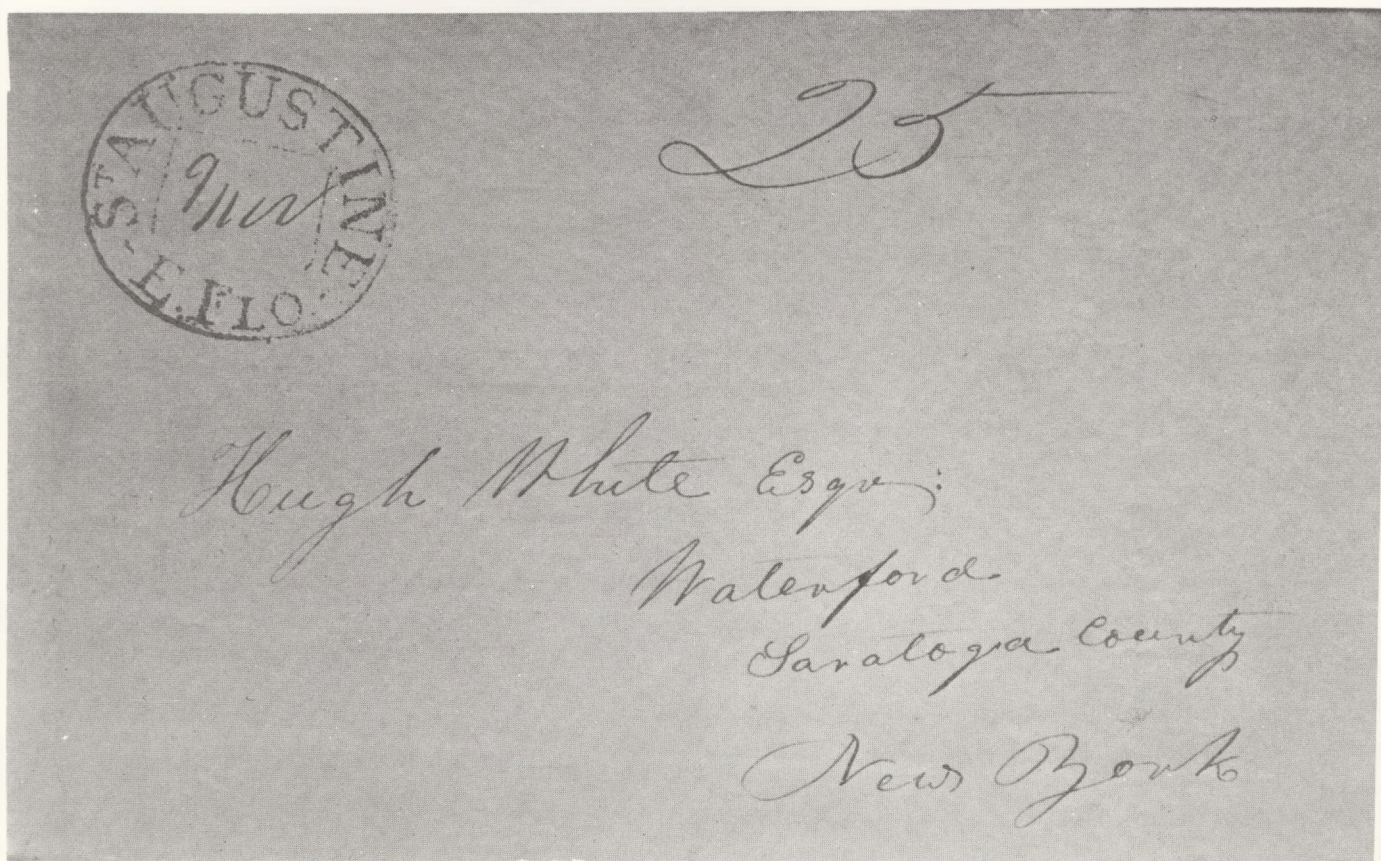 ST AUGUSTINE
E. FLO.
25
Hugh White Esqr:
Waterford
Saratoga County
New York